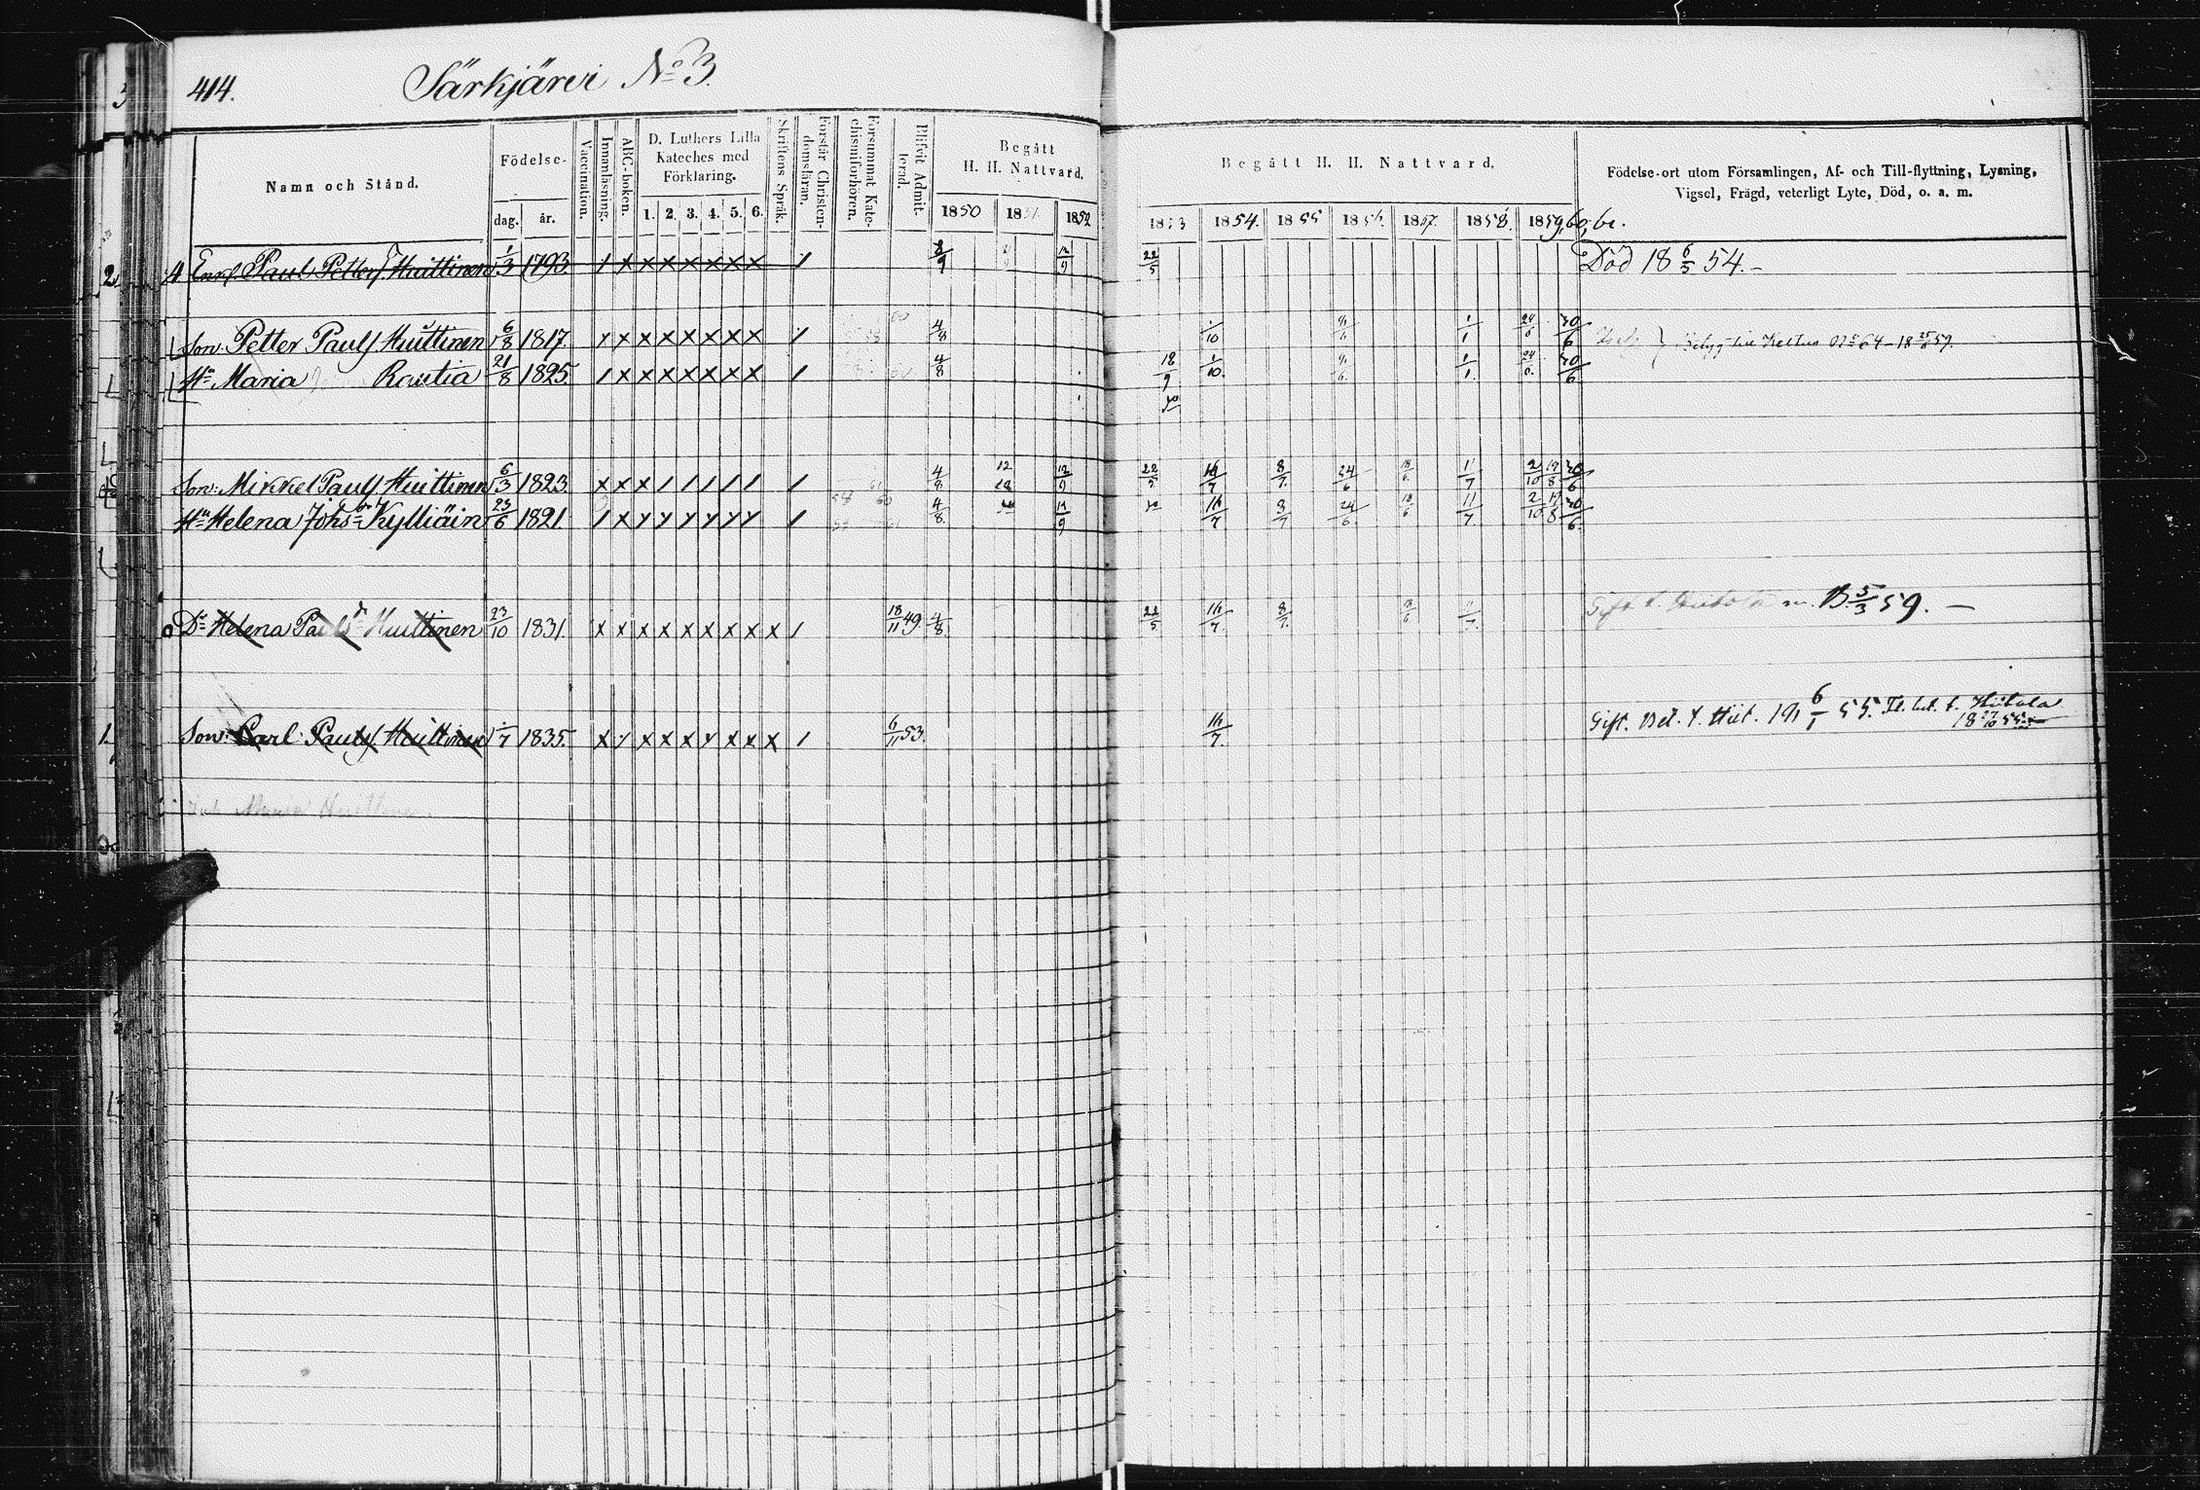 414. Särkjärvi No 3.
Namn och Stånd.
Födelse-
dag. år.
Vaccination.
Innanläsning.
ABC-boken.
D. Luthers Lilla
Kateches med
Förklaring.
1. 2. 3. 4. 5. 6.
Skriftens Språk.
Förstår Christen-
domsläran.
Försummat Kate-
chismiförhören.
Blifvit Admit-
terad.
Begått
H. H. Nattvard.
1850 1851 1852
Begått H. H. Nattvard.
1853 1854. 1855 1856. 1857. 1858. 1859, 60, 61.
Födelse-ort utom Församlingen, Af- och Till-flyttning, Lysning,
Vigsel, Frägd, veterligt Lyte, Död, o. a. m.
Paul Petterss Huittinen 1/3 1793 / x x x x x x x / 8/9 12/9 22/5 Död 18 6/5 54.
Son Petter Paulss Huittinen 6/8 1817. x x x x x x x x / 4/8 1/10 1/1 24/6 30/6
Hu Maria Rautia 21/8 1825. / x x x x x x x / 4/8 18/9 1/10. 1/1. 30/6
Son: Mikkel Paulss Huittinen 6/3 1823. x x x / / / / / / 4/8 12/9 22/5 16/7 8/7. 24/6 18/6. 11/7 2/10 19/8 30/6
Hu Helena Johs dr Kylliäin 23/6 1821 / x y y y y y y / 4/8. 12/9 16/7 8/7 24/6 18/6 11/7 2/10 19/8 30/6.
Dr Helena Pauls dr Huittinen 23/10 1831. x x x x x x x x x / 18/11 49. 4/8. 22/5 16/7. 8/7. 18/6 11/7. 5/3 59. —
Son: Carl Paulss Huittinen 1/7 1835. x y x x x y x x x / 6/11 53. 16/7. Gift. Bet. t. Hiit. 6/1 55. t. Hiitola
Maria Huittinen